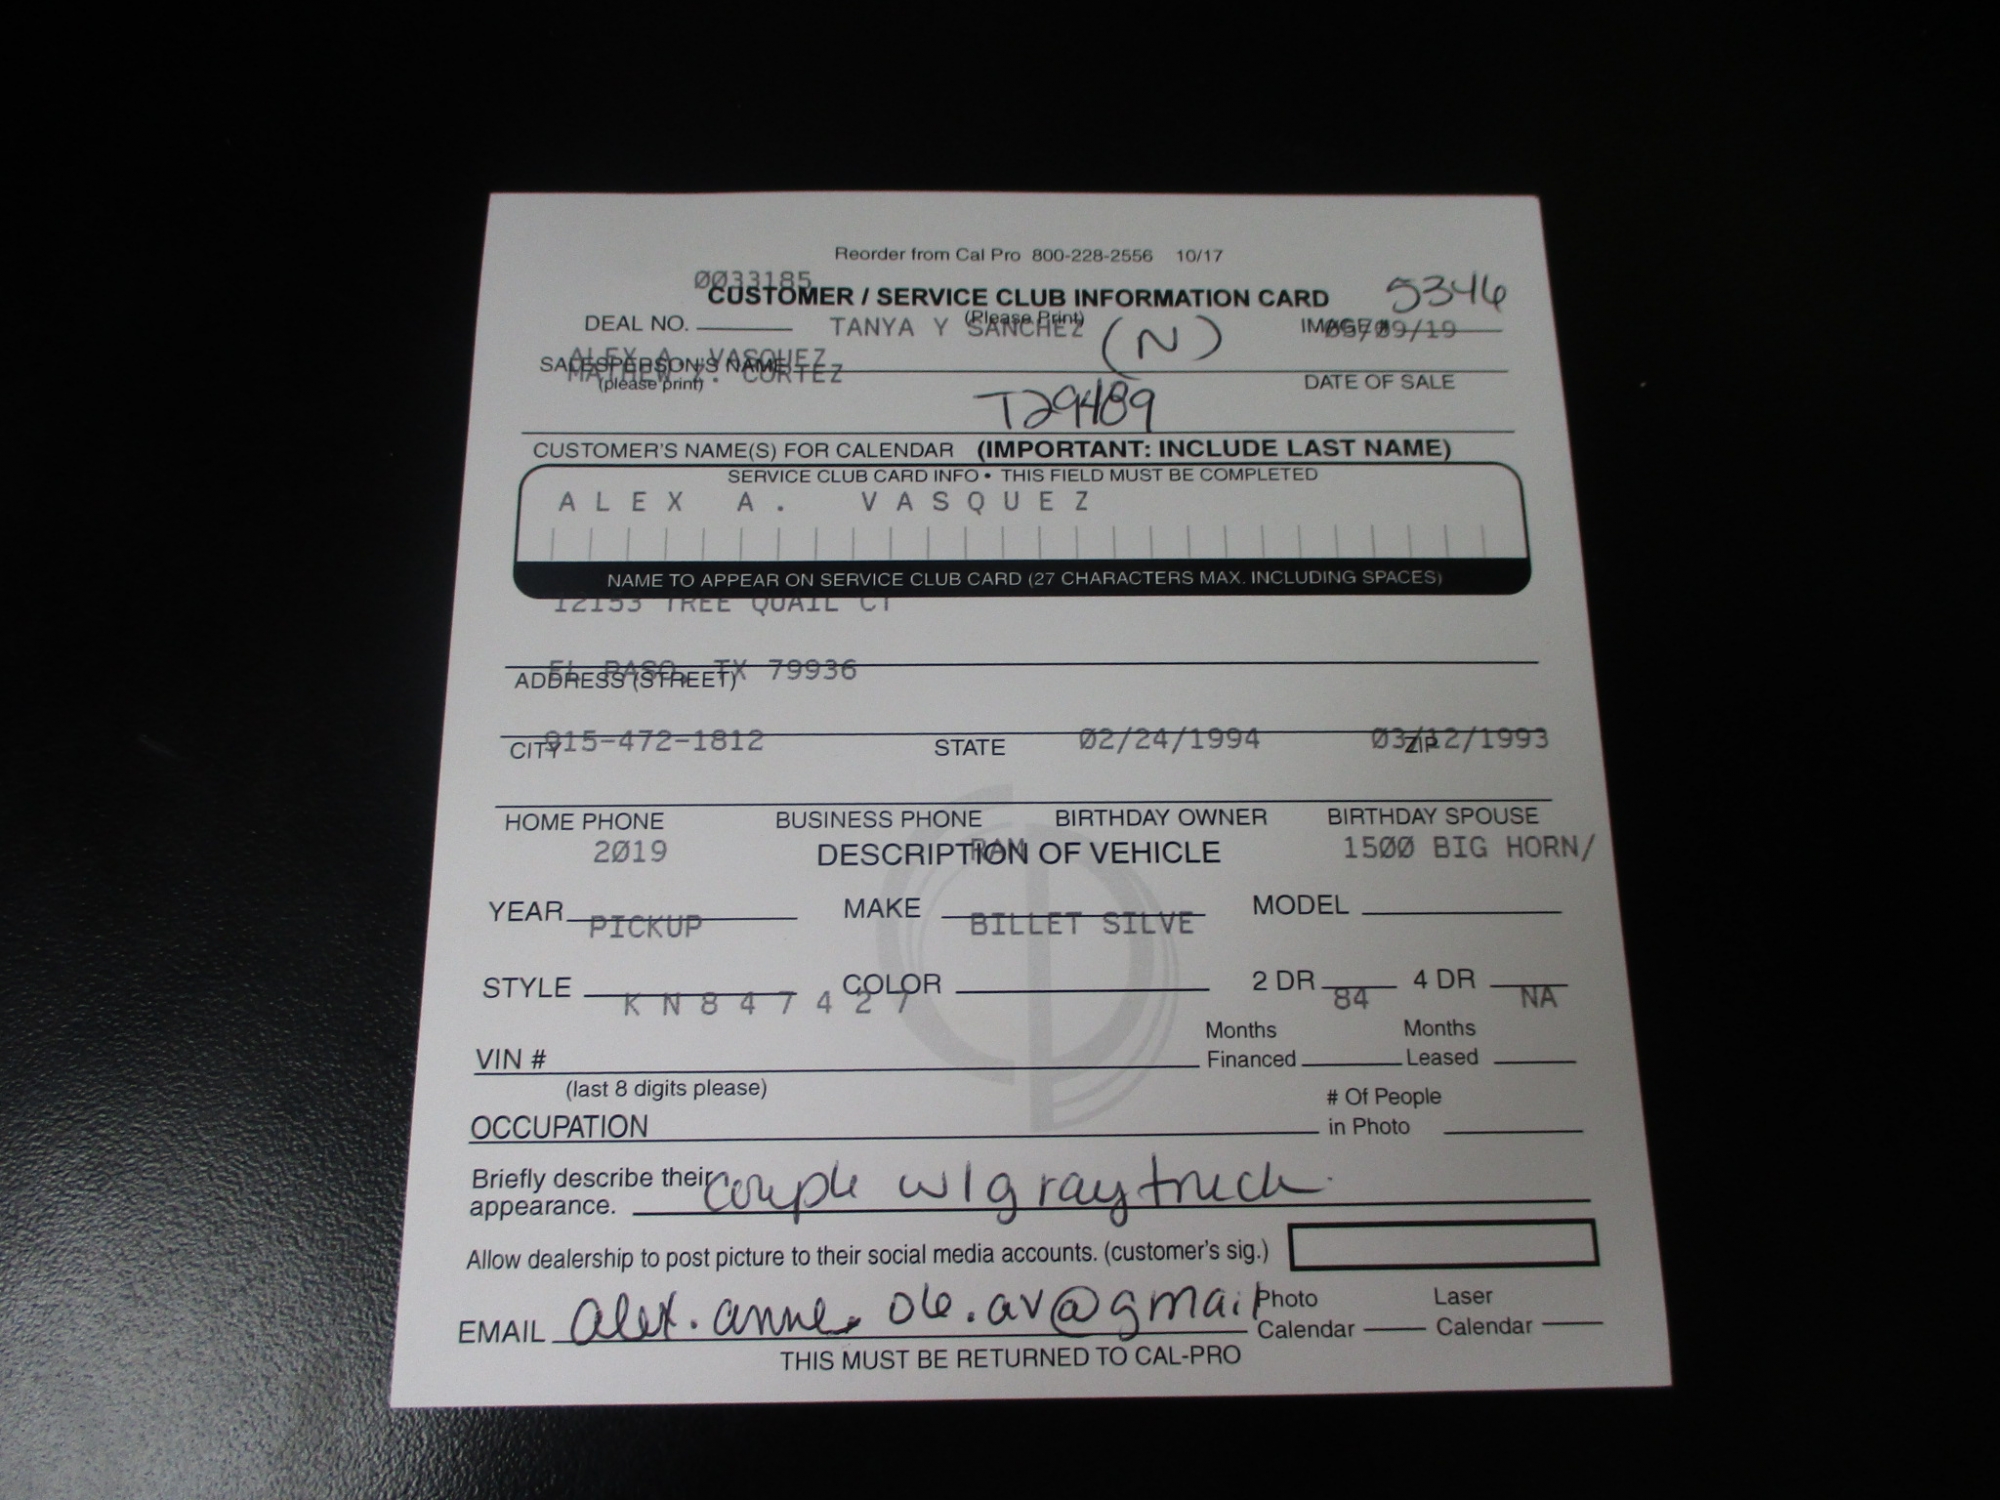 Reorder from Cal Pro 800-228-2556 10/17
0033185
CUSTOMER / SERVICE CLUB INFORMATION CARD 5346
(Please Print)
DEAL NO. TANYA Y SANCHEZ (N) IMAGE # /09/19
ALEX A. VASQUEZ
SALESPERSON'S NAME
MATHEW Z. CORTEZ
(please print) DATE OF SALE
T29489
CUSTOMER'S NAME(S) FOR CALENDAR (IMPORTANT: INCLUDE LAST NAME)
SERVICE CLUB CARD INFO • THIS FIELD MUST BE COMPLETED
ALEX A. VASQUEZ
NAME TO APPEAR ON SERVICE CLUB CARD (27 CHARACTERS MAX. INCLUDING SPACES)
12153 TREE QUAIL CT
EL PASO, TX 79936
ADDRESS (STREET)
915-472-1812 02/24/1994 03/12/1993
CITY STATE ZIP
HOME PHONE BUSINESS PHONE BIRTHDAY OWNER BIRTHDAY SPOUSE
2019 RAM 1500 BIG HORN/
DESCRIPTION OF VEHICLE
YEAR MAKE MODEL
PICKUP BILLET SILVE
STYLE COLOR 2 DR 4 DR
KN847427 84 NA
VIN # Months Financed Months Leased
(last 8 digits please)
OCCUPATION # Of People in Photo
Briefly describe their appearance. couple w/gray truck
Allow dealership to post picture to their social media accounts. (customer's sig.)
EMAIL alex.anne.06.av@gmail Photo Calendar Laser Calendar
THIS MUST BE RETURNED TO CAL-PRO